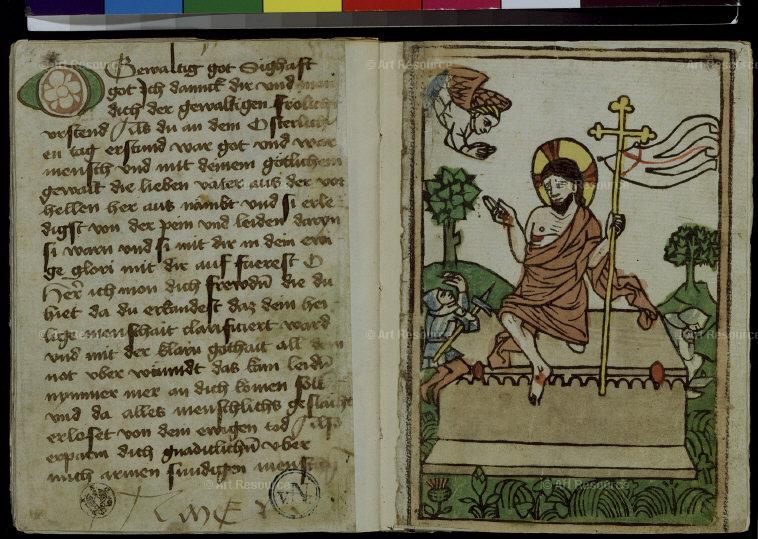 O Gewaltig got Sighaft
got Ich dannck dir vnd man
dich der gewaltigen frolich
vrstend Als du an dem Osterlich
en tag erstund war got vnd war
mensch vnd mit deinem götlichem
gewalt die lieben väter aus der vor
hellen her aus nambt vnd si erle
digst von der pein vnd leiden daryn
si warn vnd si mit dir in dein ewi
ge glori mit dir auf fuerest O
Herr ich mon dich frewdn die du
hiet da du erkandest daz dein hei
lige menschait clarificiert ward
vnd mit der klarn gothait all dein
not vber wunndt das kain leidn
nymmer mer an dich komen soll
vnd da alles menschlichs geslächt
erloset von dem ewigen tod Also
erparm dich gnadiclichn vber
mich armen sundigen mensch
© Art Resource